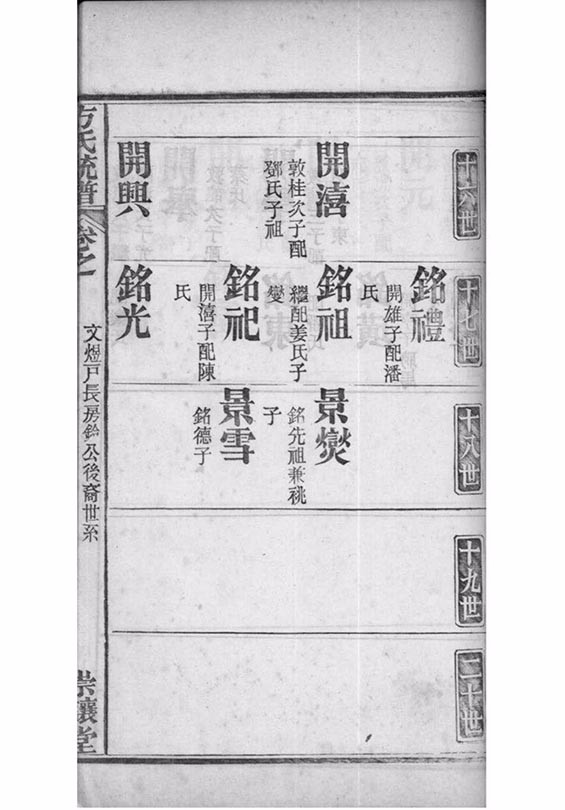 十六世
十七世
十八世
十九世
二十世
開濤
敦桂次子配
鄧氏子祖
開興
銘禮
開雄子配潘
氏
銘祖
繼配姜氏子
燮
銘祀
開濤子配陳
氏
銘光
景燮
銘先祖兼祧
子
景雪
銘德子
方氏統譜
卷之一
文煜戸長房鈴公後裔世系
崇讓堂